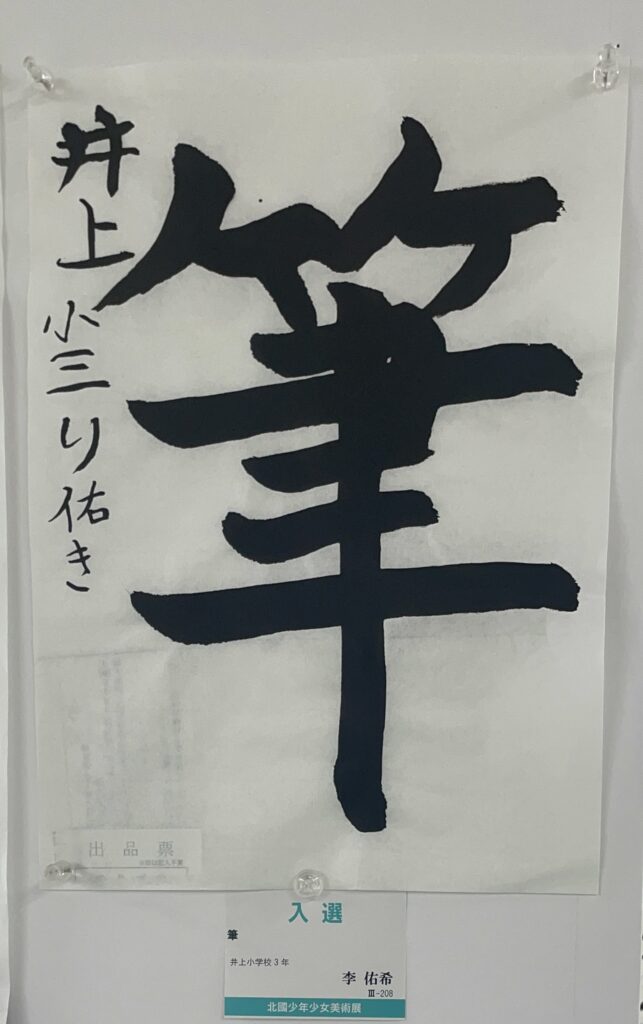 筆
井上小三り佑き
出品票
入選
筆
井上小学校3年
李 佑希
Ⅲ-208
北國少年少女美術展